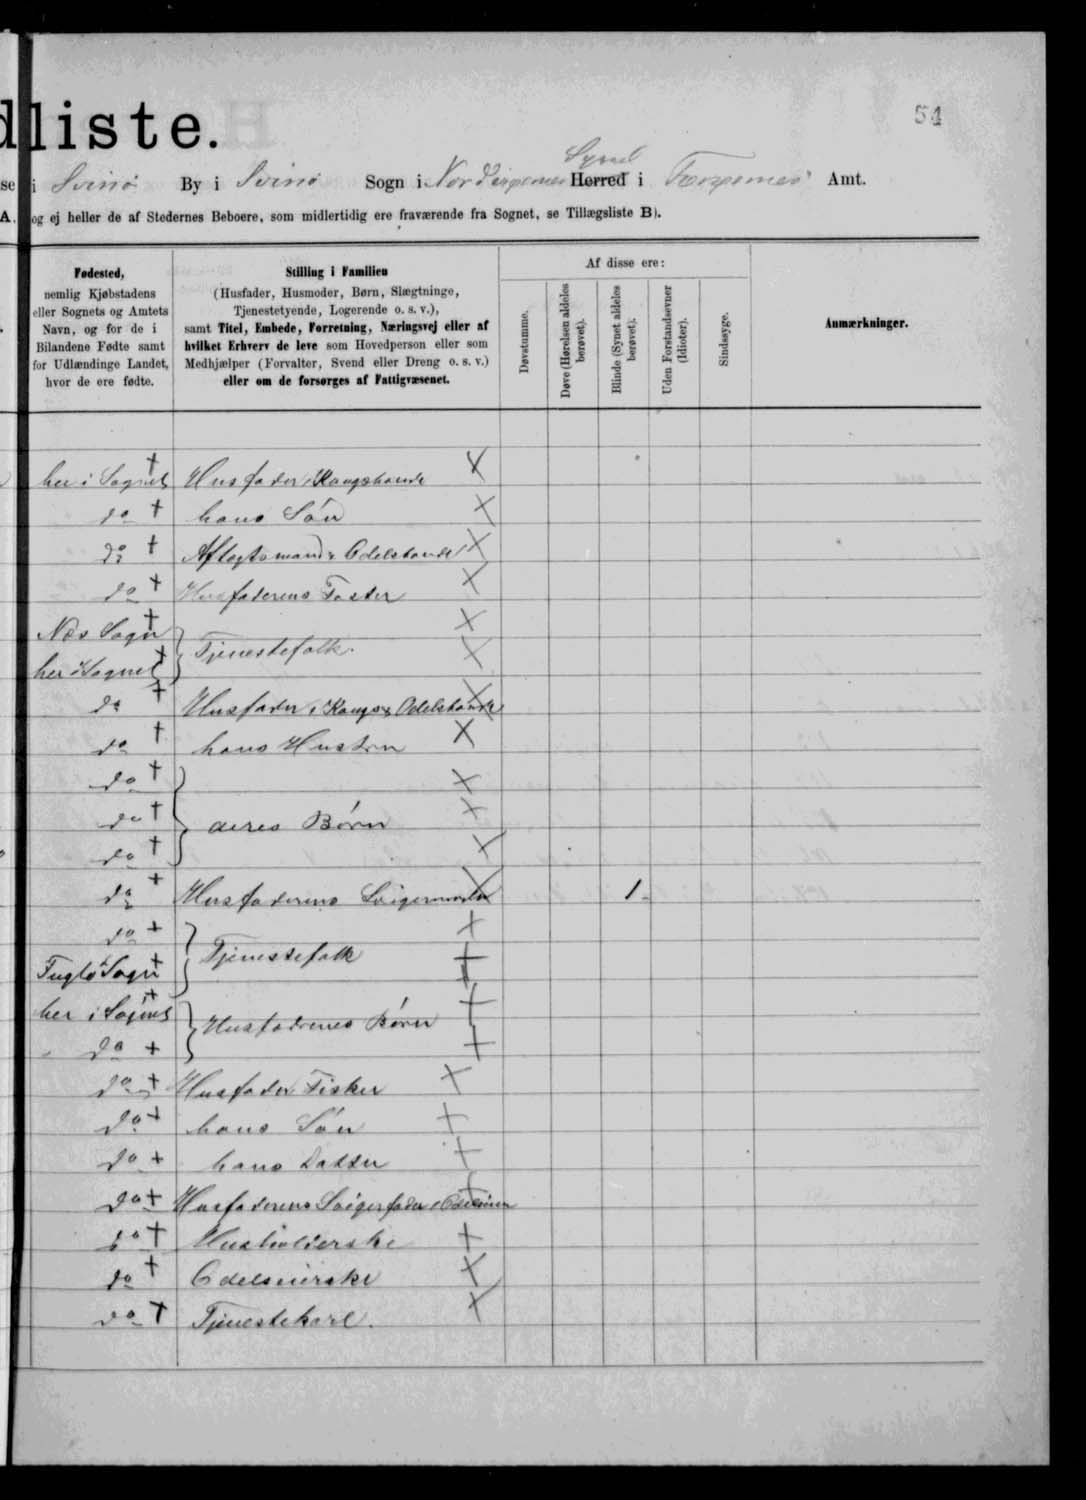 dliste.
54
se i Svinø By i Svinø Sogn i Norderøernes Syssel Herred i Færøernes Amt.
A. og ej heller de af Stedernes Beboere, som midlertidig ere fraværende fra Sognet, se Tillægsliste B).
Fødested,
nemlig Kjøbstadens
eller Sognets og Amtets
Navn, og for de i
Bilandene Fødte samt
for Udlændinge Landet,
hvor de ere fødte.
Stilling i Familien
(Husfader, Husmoder, Børn, Slægtninge,
Tjenestetyende, Logerende o. s. v.),
samt Titel, Embede, Forretning, Næringsvej eller af
hvilket Erhverv de leve som Hovedperson eller som
Medhjælper (Forvalter, Svend eller Dreng o. s. v.)
eller om de forsørges af Fattigvæsenet.
Af disse ere:
Døvstumme.
Døve (Hørelsen aldeles
berøvet).
Blinde (Synet aldeles
berøvet).
Uden Forstandsevner
(Idioter).
Sindssyge.
Anmærkninger.
her i Sognet Husfader, Kongsbonde
do hans Søn
do Aftægtsmand, Odelsbonde
do Husfaderens Faster
Næs Sogn
Tjenestefolk.
her i Sognet
do Husfader, Kongs & Odelsbonde
do hans Hustru
do
do deres Børn
do
do Husfaderens Svigermoder 1
do
Tjenestefolk
Fuglø Sogn
her i Sognet
Husfaderens Børn
do
do Husfader Fisker
do hans Søn
do hans Datter
do Husfaderens Svigerfader, Odelsmand
do Husholderske
do Odelseierske
do Tjenestekarl.